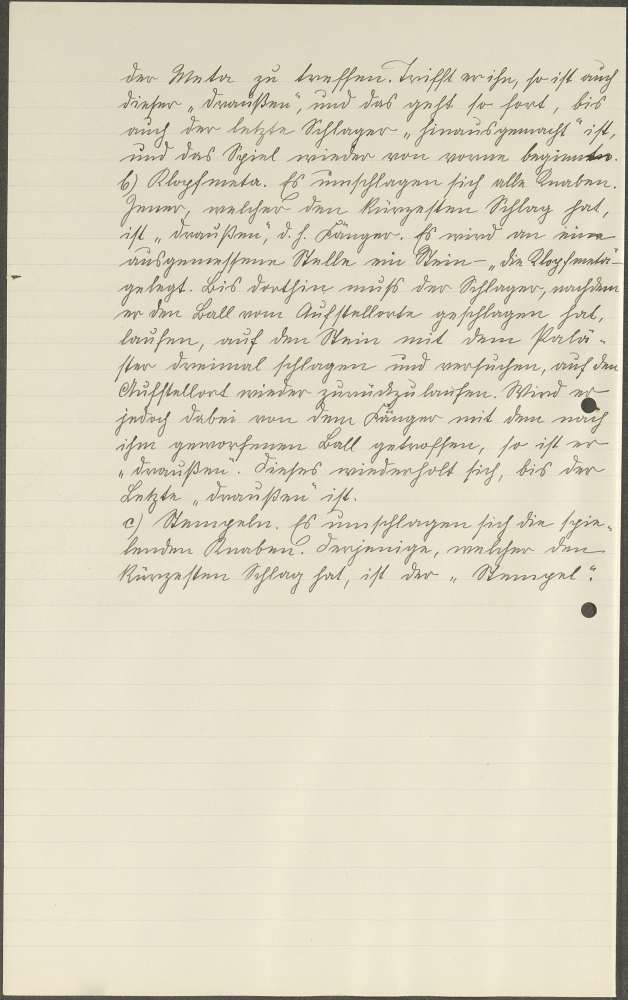 der Meta zu treffen. Trifft er ihn, so ist auch
dieser „draußen", und das geht so fort, bis
auch der letzte Schlager „hinausgemacht" ist,
und das Spiel wieder von vorne beginnen.
b) Klopfmeta. Es umschlagen sich alle Knaben.
Jener, welcher den kürzesten Schlag hat,
ist „draußen", d. h. Fänger. Es wird an eine
ausgemessene Stelle ein Stein – „die Klopfmeta" –
gelegt. Bis dorthin muß der Schlager, nachdem
er den Ball vom Aufstellorte geschlagen hat,
laufen, auf den Stein mit dem Palä-
ster dreimal schlagen und versuchen, auf den
Aufstellort wieder zurückzulaufen. Wird er
jedoch dabei von dem Fänger mit dem nach
ihm geworfenen Ball getroffen, so ist er
„draußen". Dieses wiederholt sich, bis der
Letzte „draußen" ist.
c) Stempeln. Es umschlagen sich die spie-
lenden Knaben. Derjenige, welcher den
kürzesten Schlag hat, ist der „Stempel".